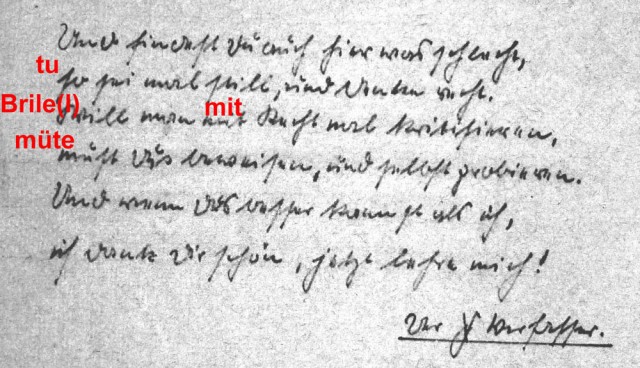 Und findest Du auch hier was schlecht,
tu
so sei mal still, und denke recht.
Brile(l) mit
Will man mit Recht mal kritisieren,
müte
mußt Du's beweisen, und selbst probieren.
Und wenn Du's besser kannst als ich,
ich dank Dir schön, jetzt lehre mich!
Der Verfasser.